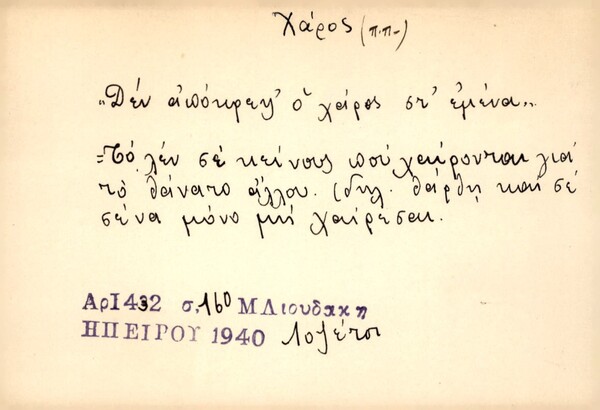 Χάρος (π.π-)
"Δέν ἀπόκρεψ' ὁ χάρος στ' ἐμένα"
=Τό λέν σέ κείνους πού χαίρονται γιά
τό θάνατο ἄλλου. (δηλ. θἄρθη καί σέ
σένα μόνο μή χαίρεσαι.
Αρ1432 σ,160 ΜΛιουδακη
ΗΠΕΙΡΟΥ 1940 Λοζέτσι